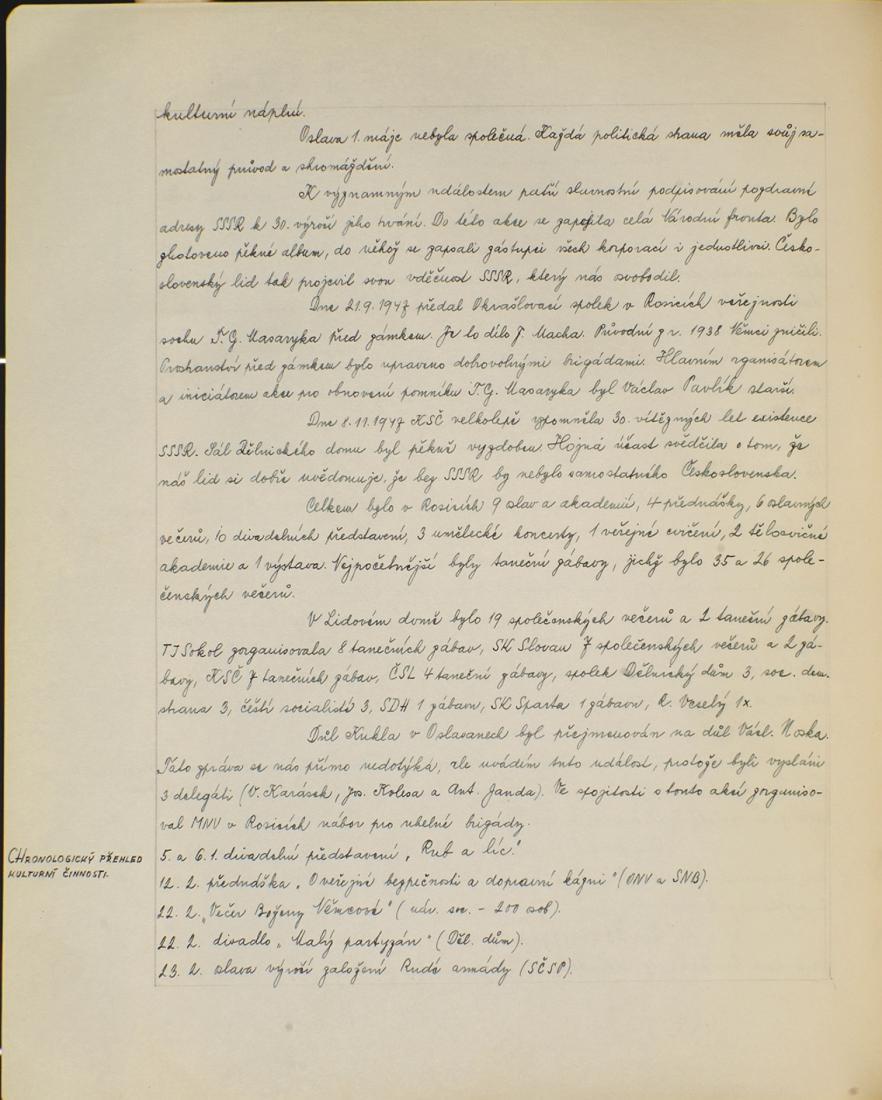 kulturní náplní.
Oslava 1. máje nebyla společná. Každá politická strana měla svůj sa-
mostatný průvod a shromáždění.
K významným událostem patří slavnostní podpisování pozdravné
adresy SSSR k 30. výročí jeho trvání. Do této akce se zapojila celá Národní fronta. Bylo
zhotoveno pěkné album, do něhož se zapsali zástupci všech korporací i jednotlivci. Česko-
slovenský lid tak projevil svou vděčnost SSSR, který nás osvobodil.
Dne 21.9.1947 předal Okrašlovací spolek v Rosicích veřejnosti
sochu T. G. Masaryka před zámkem. Je to dílo J. Macha. Původní z r. 1938 Němci zničili.
Prostranství před zámkem bylo upraveno dobrovolnými brigádami. Hlavním organisátorem
a iniciátorem akce pro obnovení pomníku T. G. Masaryka byl Václav Pavlík starší.
Dne 8.11.1947 KSČ velkolepě vzpomněla 30. vítězných let existence
SSSR. Sál Dělnického domu byl pěkně vyzdoben. Hojná účast svědčila o tom, že
náš lid si dobře uvědomuje, že bez SSSR by nebylo samostatného Československa.
Celkem bylo v Rosicích 9 oslav a akademií, 4 přednášky, 6 slavných
večerů, 10 divadelních představení, 3 umělecké koncerty, 1 veřejné cvičení, 2 tělocvičné
akademie a 1 výstava. Nejpočetnější byly taneční zábavy, jichž bylo 35 a 26 spole-
čenských večerů.
V Lidovém domě bylo 19 společenských večerů a 2 taneční zábavy.
TJ Sokol zorganisovala 8 tanečních zábav, SK Slovan 7 společenských večerů a 2 zá-
bavy, KSČ 7 tanečních zábav, ČSL 4 taneční zábavy, spolek Dělnický dům 3, soc. dem.
strana 3, čeští socialisté 3, SDH 1 zábavu, SK Sparta 1 zábavu, R. Veselý 1x.
Důl Kukla v Oslavanech byl přejmenován na důl Václ. Noska.
Tato zpráva se nás přímo nedotýká, ale uvádím tuto událost, protože byli vysláni
3 delegáti (V. Karásek, Jos. Kolesa a Ant. Janda). Ve spojitosti s touto akcí zorganiso-
val MNV v Rosicích nábor pro uhelné brigády.
CHRONOLOGICKÝ PŘEHLED
KULTURNÍ ČINNOSTI.
5. a 6.1. divadelní představení „Rub a líc."
12. 2. přednáška „O veřejné bezpečnosti a dopravní kázni" (ONV a SNB).
22. 2. „Večer Boženy Němcové" (nár. soc. - 200 osob).
22. 2. divadlo „Malý partyzán" (Děl. dům).
23. 2. oslava výročí založení Rudé armády (SČSP).